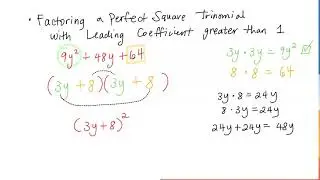 • Factoring a Perfect Square Trinomial
with Leading Coefficient greater than 1
9y² + 48y + 64
(3y + 8)(3y + 8)
(3y + 8)²
3y · 3y = 9y² ☑
8 · 8 = 64
3y · 8 = 24y
8 · 3y = 24y
24y + 24y = 48y